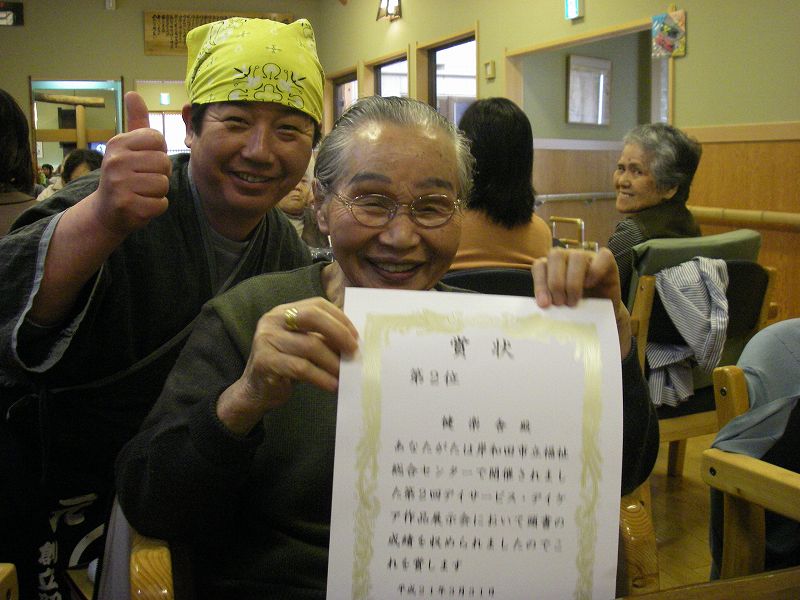 賞状
第2位
健楽舎殿
あなたがたは岸和田市立福祉
総合センターで開催されまし
た第2回デイサービス・デイケ
ア作品展示会において頭書の
成績を収められましたのでこ
れを賞します
平成21年3月31日
元
創立